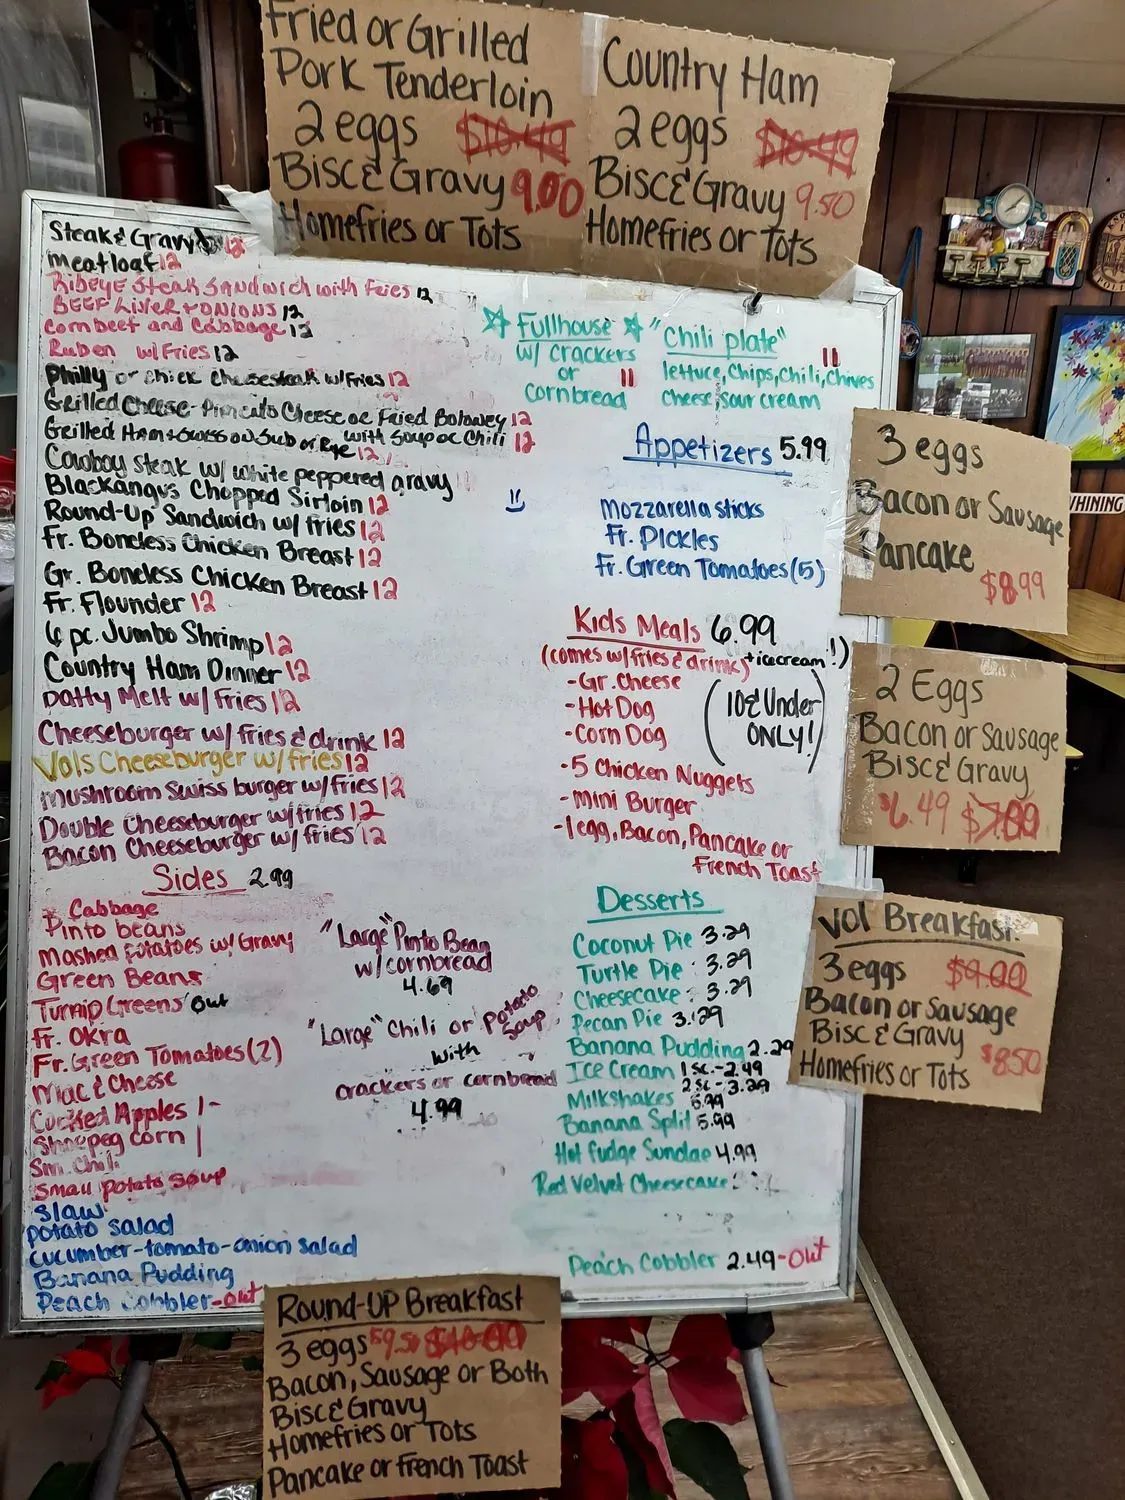 Fried or Grilled
Pork Tenderloin
2 eggs $10.49
Bisc & Gravy 9.00
Homefries or Tots
Country Ham
2 eggs $10.49
Bisc & Gravy 9.50
Homefries or Tots
Steak & Gravy 12
meatloaf 12
Ribeye Steak Sandwich with Fries 12
BEEF Liver + ONIONS 12
Cornbeef and Cabbage 12
Ruben w/Fries 12
Philly or chick cheesesteak w/Fries 12
Grilled Cheese-Pimento Cheese or Fried Bolowey 12
Grilled Ham & Swiss on Sub or Rye with Soup or Chili 12
12
Cowboy Steak w/ white peppered gravy
Blackangus Chopped Sirloin 12
Round-Up Sandwich w/ fries 12
Fr. Boneless Chicken Breast 12
Gr. Boneless Chicken Breast 12
Fr. Flounder 12
6 pc. Jumbo Shrimp 12
Country Ham Dinner 12
Patty Melt w/ Fries 12
Cheeseburger w/ fries & drink 12
Vols Cheeseburger w/fries 12
Mushroom Swiss burger w/fries 12
Double Cheeseburger w/fries 12
Bacon Cheeseburger w/fries 12
Sides 2.99
Cabbage
Pinto beans
Mashed Potatoes w/ Gravy
Green Beans
Turnip Greens Out
Fr. Okra
Fr. Green Tomatoes (2)
Mac & Cheese
Cooked Apples 1-
Shoepeg Corn 1
Sm. Chili
Small potato soup
Slaw
potato salad
cucumber-tomato-onion salad
Banana Pudding
Peach Cobbler-out
"Large" Pinto Bean
w/cornbread
4.69
"Large" Chili or Potato
Soup
with
crackers or cornbread
4.99
Fullhouse
w/ crackers
or
Cornbread 11
"Chili plate"
11
lettuce, Chips, Chili, Chives
cheese, sour cream
Appetizers 5.99
Mozzarella sticks
Fr. Pickles
Fr. Green Tomatoes (5)
Kids Meals 6.99
(comes w/fries & drink) + icecream!)
-Gr. Cheese
-Hot Dog
-Corn Dog
(10 & Under
ONLY!)
-5 Chicken Nuggets
-Mini Burger
-1 egg, Bacon, Pancake or
French Toast
Desserts
Coconut Pie 3.29
Turtle Pie 3.29
Cheesecake 3.29
Pecan Pie 3.29
Banana Pudding 2.29
Ice Cream 1 sc.-2.49
2 sc-3.29
Milkshakes 5.99
Banana Split 5.99
Hot fudge Sundae 4.99
Red Velvet Cheesecake
Peach Cobbler 2.49-Out
3 eggs
Bacon or Sausage
Pancake
$8.99
2 Eggs
Bacon or Sausage
Bisc & Gravy
$6.49 $7.00
Vol Breakfast
3 eggs $9.00
Bacon or Sausage
Bisc & Gravy
Homefries or Tots $8.50
Round-UP Breakfast
3 eggs $9.50 $10.00
Bacon, Sausage or Both
Bisc & Gravy
Homefries or Tots
Pancake or French Toast
WHINING